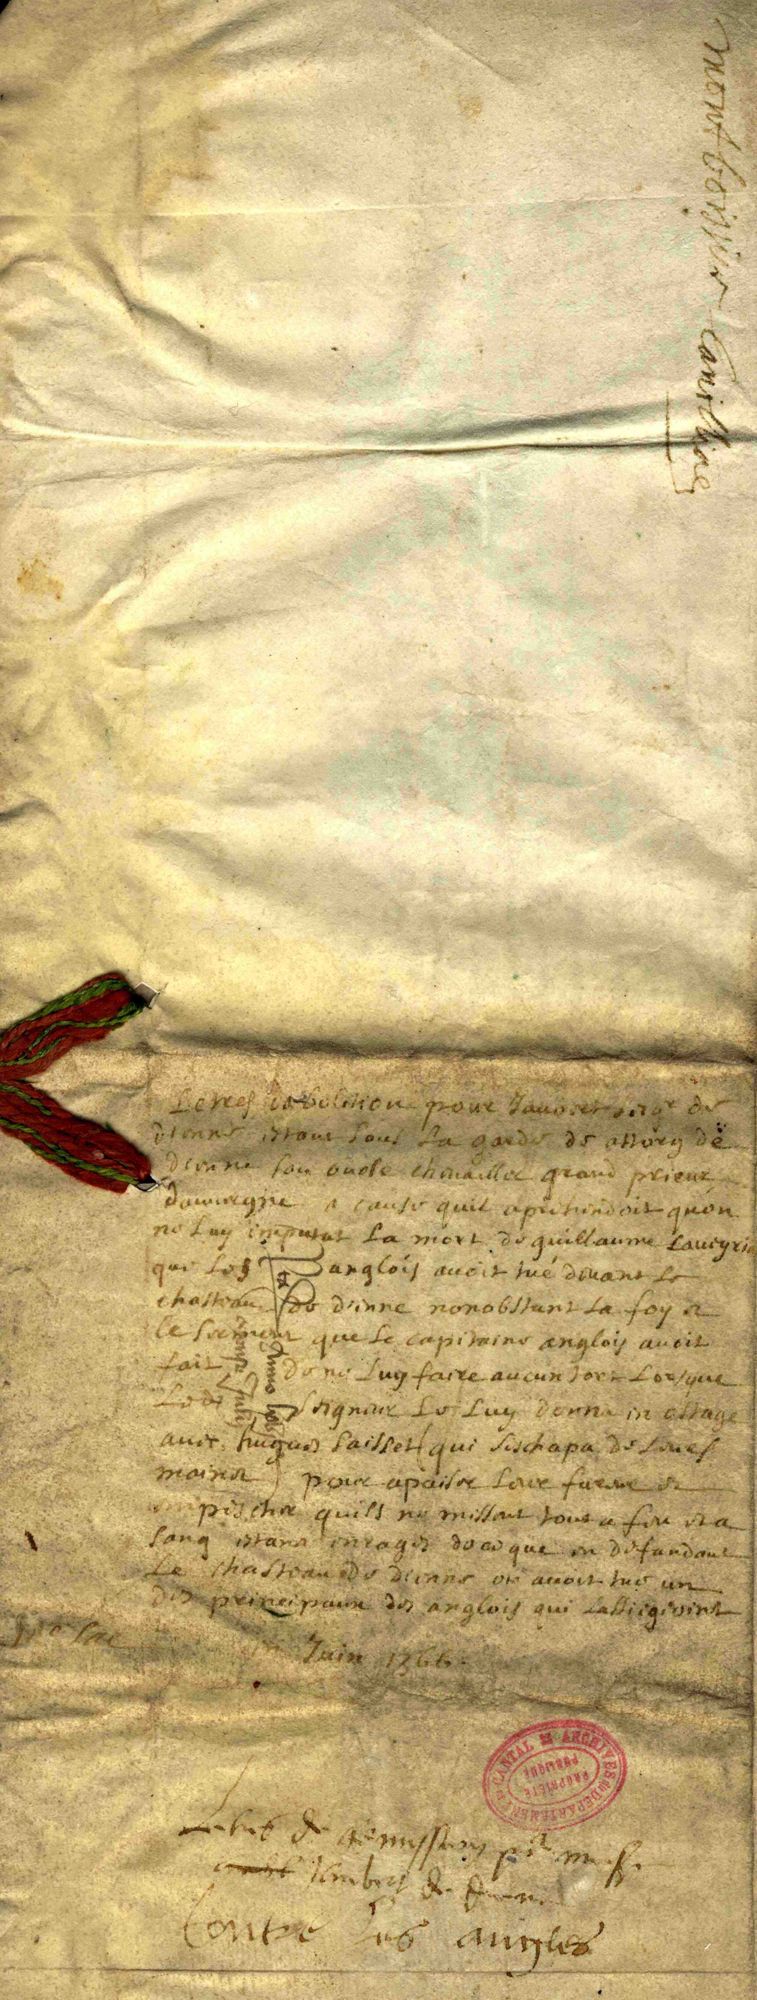 montboissier Canilliac
Letres dabolition pour Jaubert seigr de
dienne estant sous la garde de attory de
dienne son oncle chevaillier grand prieur
dauvergne a cause quil aprehendoit quon
ne luy imputat la mort de guillaume
que les anglois avoit tué devant le
chasteau de dienne nonobstant la foy et
le serment que le capitaine anglois avoit
fait de ne luy faire aucun tort lorsque
ledit seigneur le luy donna en ostage
avec hugues saisset (qui seschapa de leurs
mains) pour apaiser leur fureur et
empescher quils ne missent tout a feu et a
sang estans enrages de ce que en defandant
le chasteau de dienne on avoit tué un
des principaux des anglois qui lassiegeoint
en Juin 1366
CANTAL ARCHIVES DEPARTEMENT
PROPRIÉTÉ PUBLIQUE
de remission
de
Contre les angles